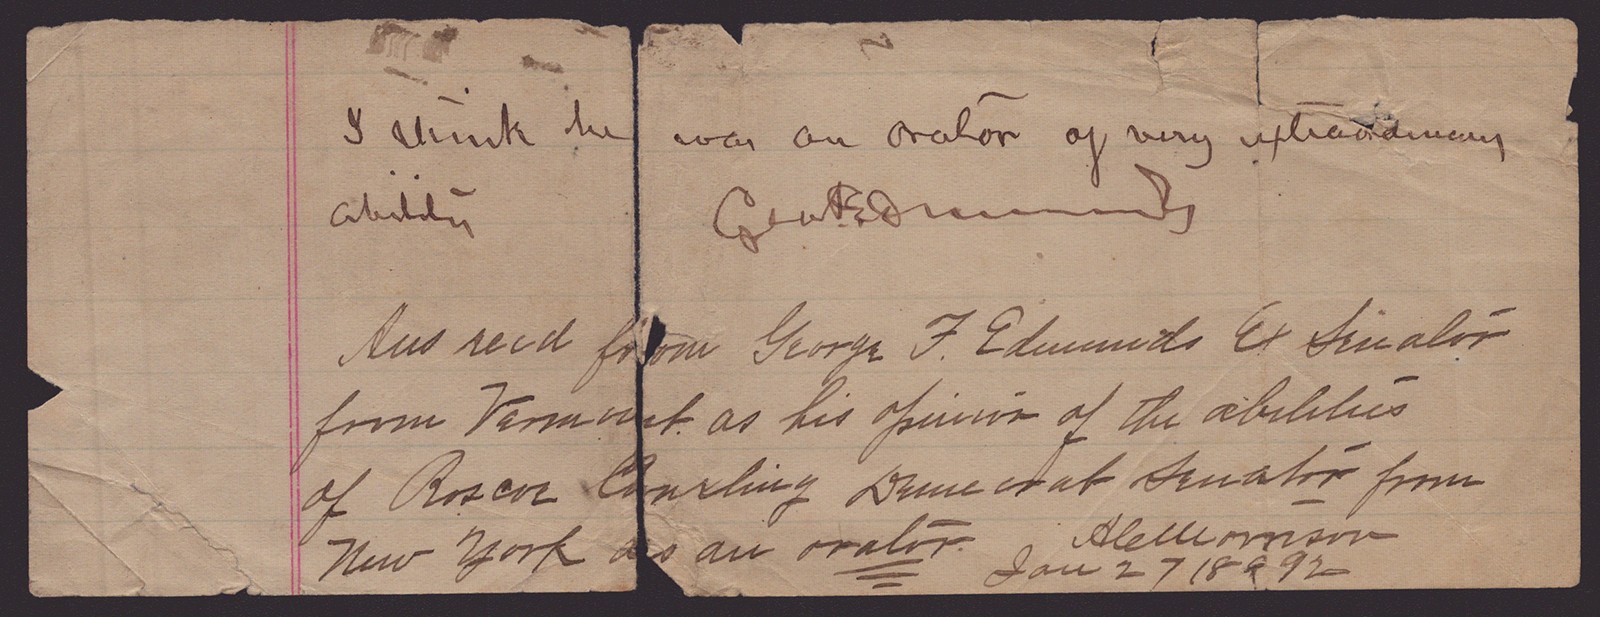 I think he was an orator of very extraordinary
ability Geo F Edmunds
Ans recd from George F. Edmunds Ex Senator
from Vermont as his opinion of the abilities
of Roscoe Conkling Democrat Senator from
New York as an orator.
Jan 27 1892